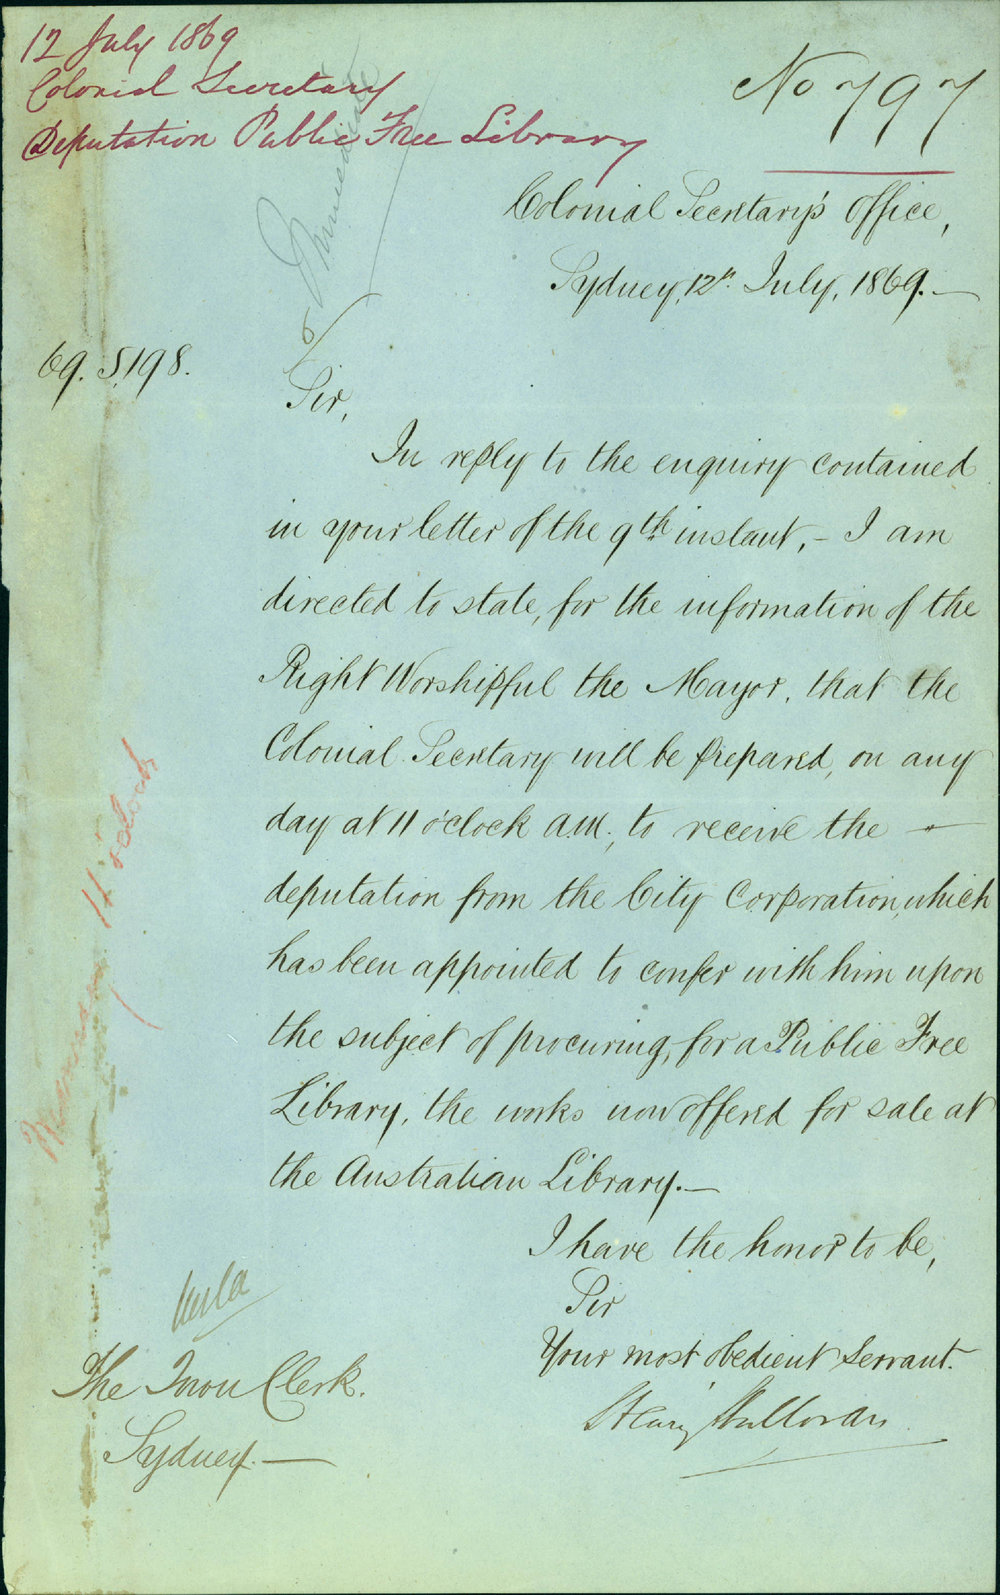 12 July 1869
Colonial Secretary
Deputation Public Free Library
No 797
Immediate
Colonial Secretary's Office,
Sydney, 12th. July, 1869.—
69. 5198.
Sir,
In reply to the enquiry contained
in your letter of the 9th. instant,- I am
directed to state, for the information of the
Right Worshipful the Mayor, that the
Colonial Secretary will be prepared, on any
day at 11 o'clock a.m., to receive the —
deputation from the City Corporation, which
has been appointed to confer with him upon
the subject of procuring, for a Public Free
Library, the works now offered for sale at
the Australian Library.—
I have the honor to be,
Sir
Your most obedient Servant.
Henry Halloran
The Town Clerk.
Sydney.—
11 o'clock